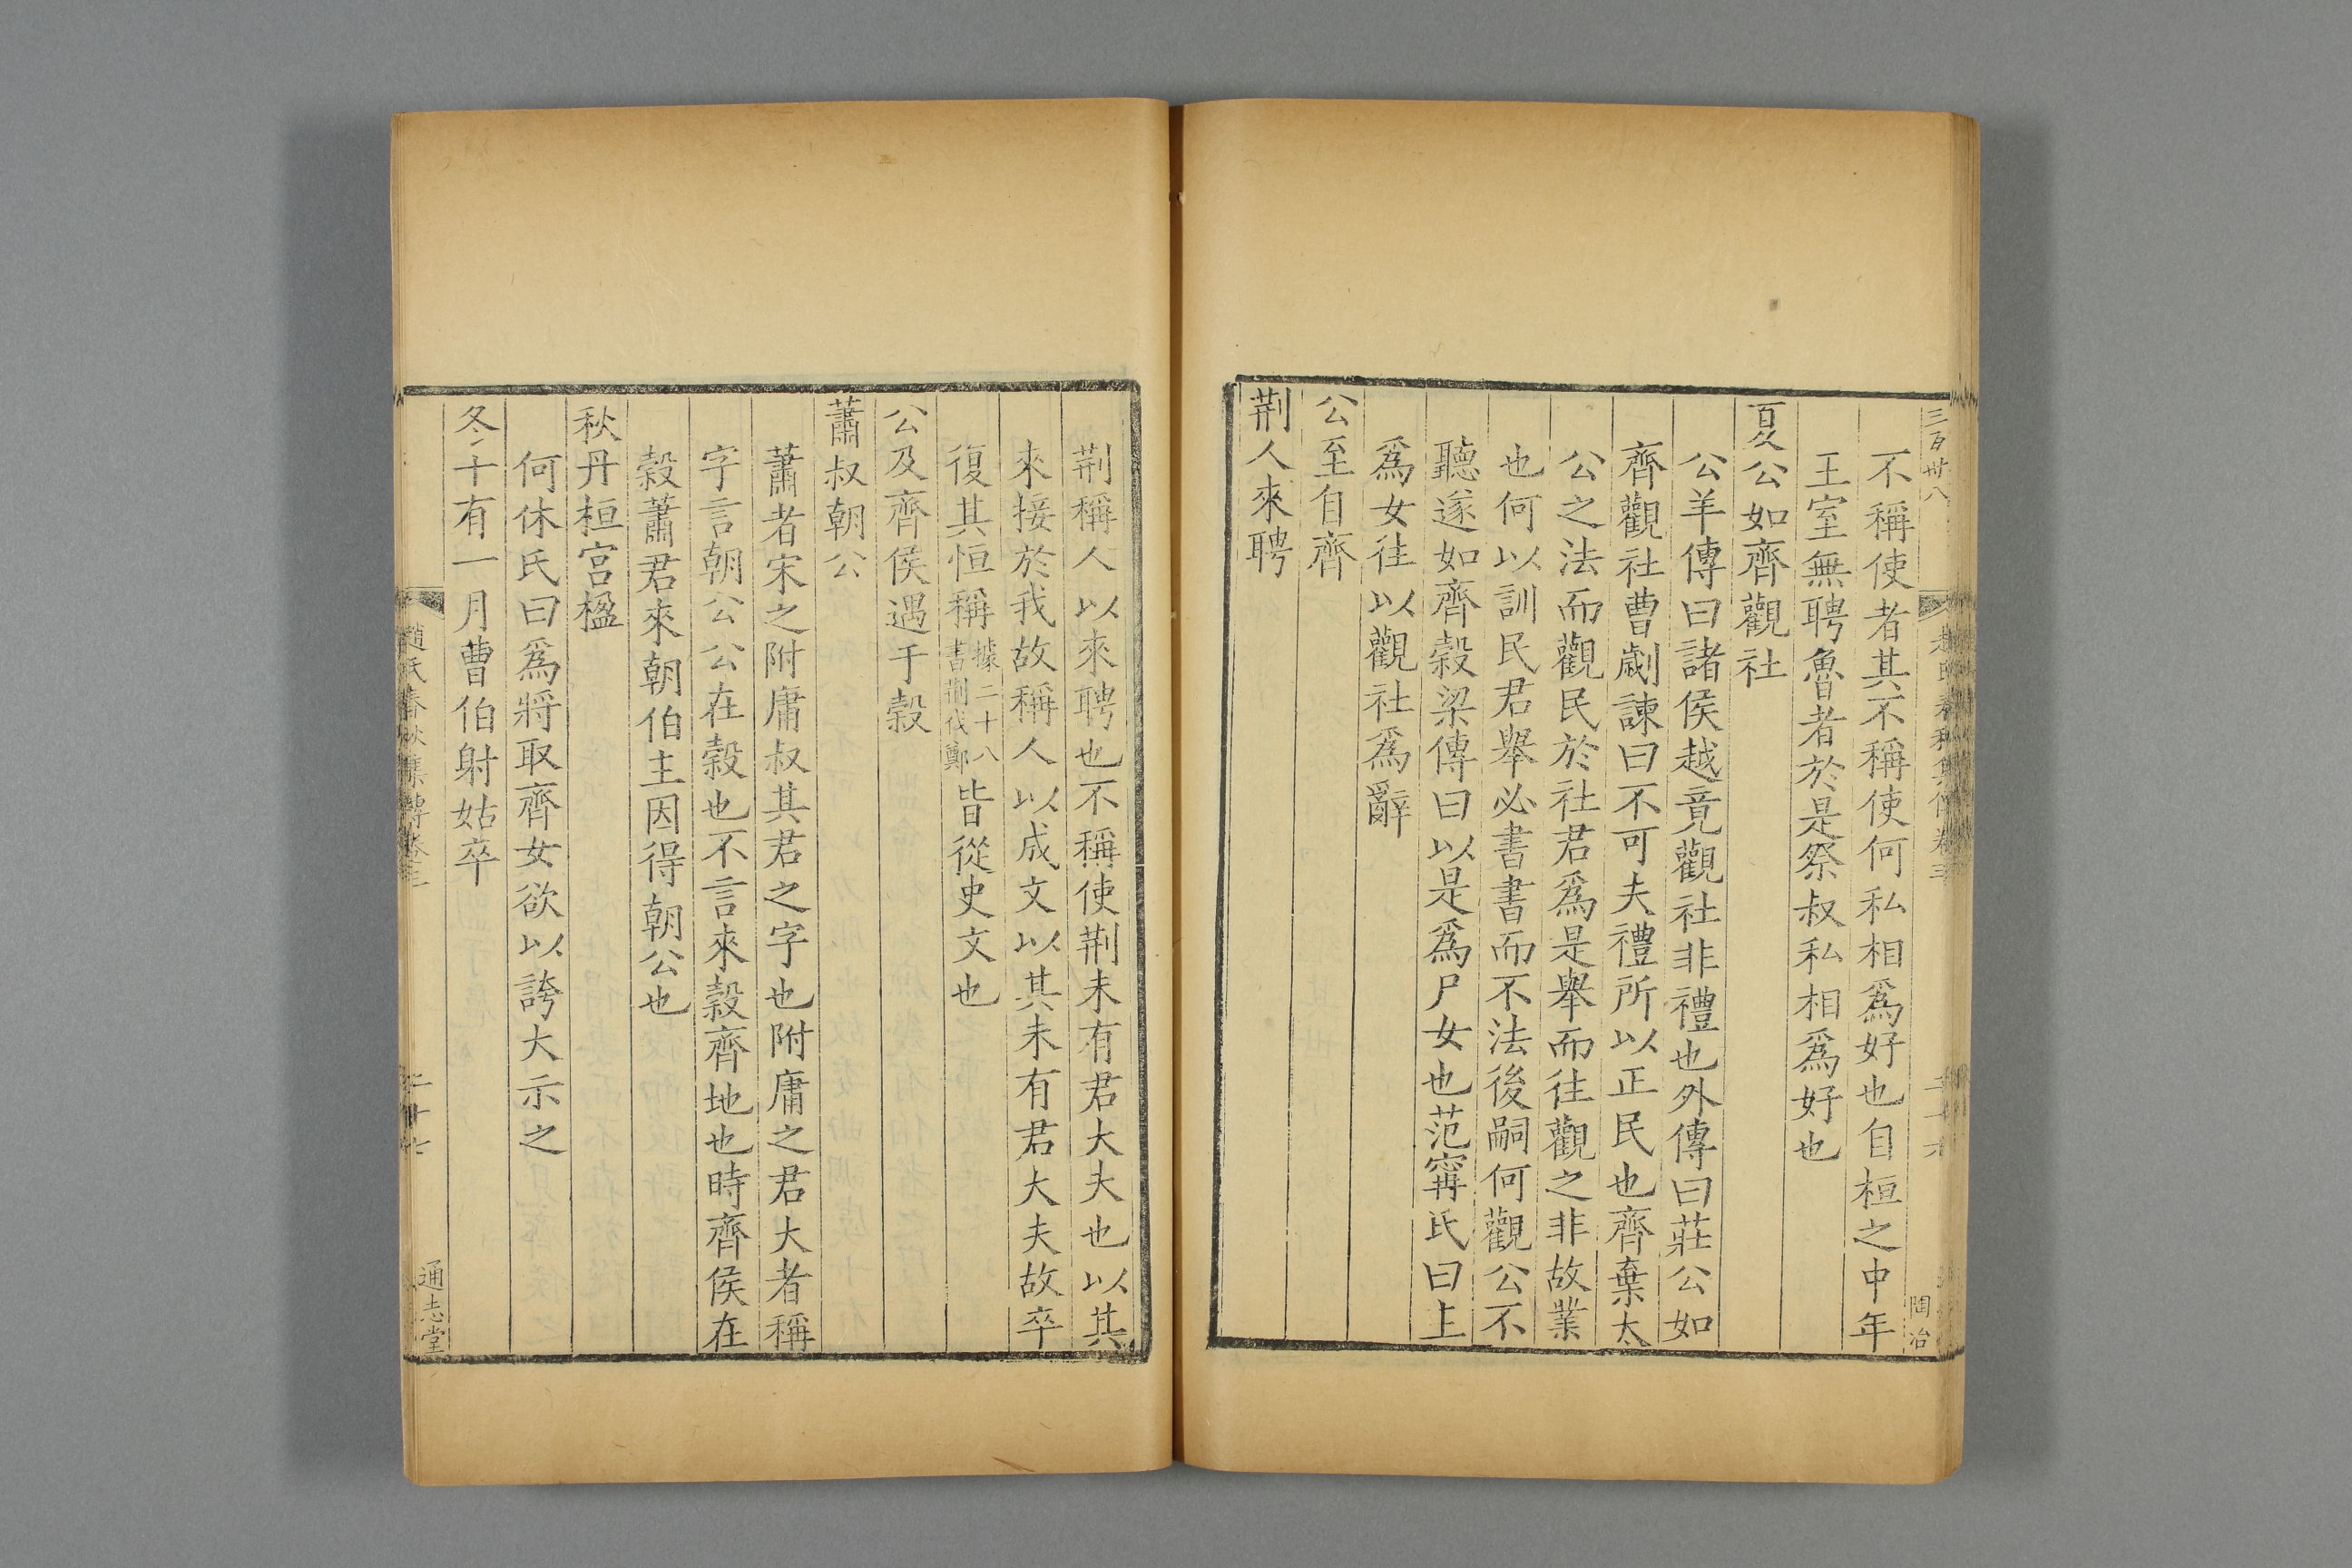 三百卅八
不稱使者其不稱使何私相爲好也自桓之中年
王室無聘魯者於是祭叔私相爲好也
夏公如齊觀社
公羊傳曰諸侯越竟觀社非禮也外傳曰莊公如
齊觀社曹劌諫曰不可夫禮所以正民也齊棄太
公之法而觀民於社君爲是舉而往觀之非故業
也何以訓民君舉必書書而不法後嗣何觀公不
聽遂如齊穀梁傳曰以是爲尸女也范甯氏曰主
爲女往以觀社爲辭
公至自齊
荆人來聘
陶冶
荆稱人以來聘也不稱使荆未有君大夫也以其
來接於我故稱人以成文以其未有君大夫故卒
復其恒稱據二十八書荆伐鄭皆從史文也
公及齊侯遇于穀
蕭叔朝公
蕭者宋之附庸叔其君之字也附庸之君大者稱
字言朝公公在穀也不言來穀齊地也時齊侯在
穀蕭君來朝伯主因得朝公也
秋丹桓宮楹
何休氏曰爲將取齊女欲以誇大示之
冬十有一月曹伯射姑卒
趙氏春秋集傳卷三
二十七
通志堂